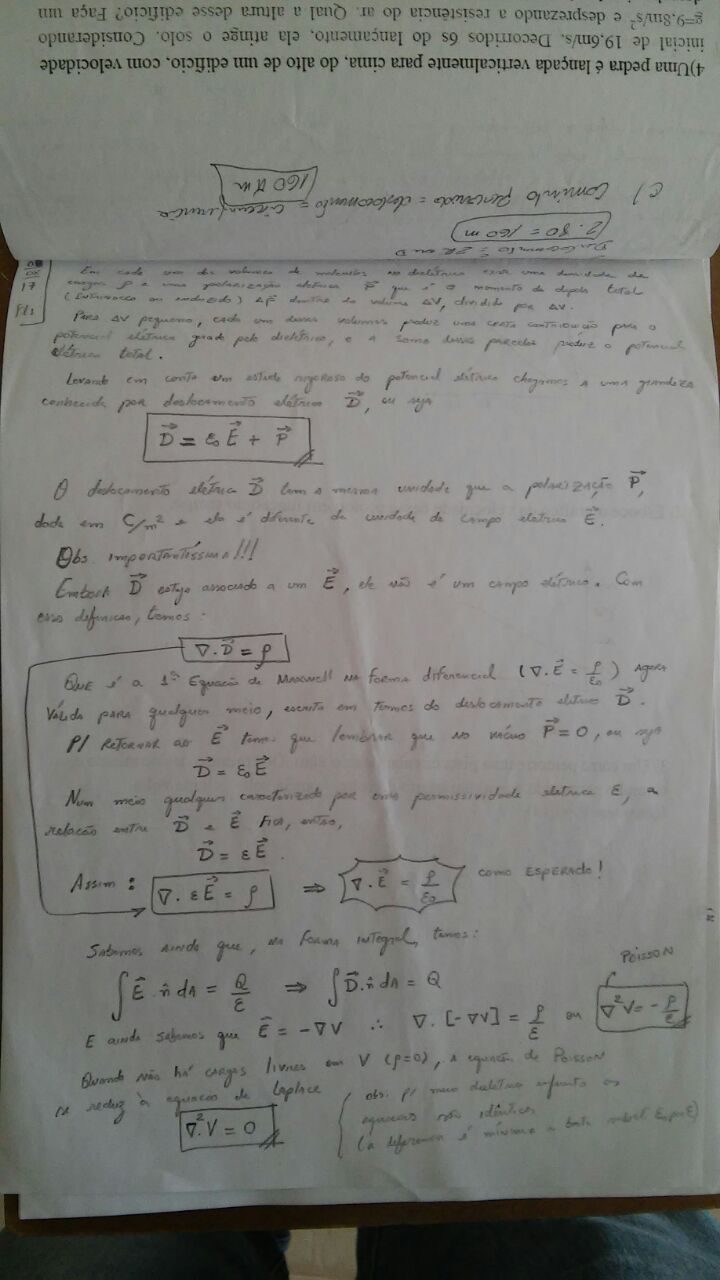 4)Uma pedra é lançada verticalmente para cima, do alto de um edifício, com velocidade
inicial de 19,6m/s. Decorridos 6s do lançamento, ela atinge o solo. Considerando
g=9,8m/s² e desprezando a resistência do ar. Qual a altura desse edifício? Faça um
2.80 = 160 m
c) Caminho percorrido = deslocamento = circunferência
160 π m
17
Em cada um dos volumes de moléculas no dielétrico existe uma densidade de
cargas ρ e uma polarização elétrica P⃗ que é o momento de dipolo total
(intrínseco ou induzido) Δp⃗ dentro do volume ΔV, dividido por ΔV.
Para ΔV pequeno, cada um desses volumes produz uma certa contribuição para o
potencial elétrico gerado pelo dielétrico, e a soma dessas parcelas produz o potencial
elétrico total.
Levando em conta um estudo rigoroso do potencial elétrico chegamos a uma grandeza
conhecida por deslocamento elétrico D⃗, ou seja
D⃗ = ε₀ E⃗ + P⃗
O deslocamento elétrico D⃗ tem a mesma unidade que a polarização P⃗,
dada em C/m² e ela é diferente da unidade de campo elétrico E⃗.
Obs. importantíssima!!!
Embora D⃗ esteja associado a um E⃗, ele não é um campo elétrico. Com
essa definição, temos:
∇.D⃗ = ρ
Que é a 1ª Equação de Maxwell na forma diferencial (∇.E⃗ = ρ/ε₀) agora
válida para qualquer meio, escrita em termos do deslocamento elétrico D⃗.
P/ retornar ao E⃗ temos que lembrar que no vácuo P⃗ = 0, ou seja
D⃗ = ε₀ E⃗
Num meio qualquer caracterizado por uma permissividade elétrica ε, a
relação entre D⃗ e E⃗ fica, então,
D⃗ = ε E⃗.
Assim: ∇. ε E⃗ = ρ ⇒ ∇.E⃗ = ρ/ε₀ como esperado!
Sabemos ainda que, na forma integral, temos:
∫ E⃗ . n̂ dA = Q/ε ⇒ ∫ D⃗ . n̂ dA = Q
Poisson
E ainda sabemos que E⃗ = -∇V ∴ ∇.[-∇V] = ρ/ε ou ∇²V = -ρ/ε
Quando não há cargas livres em V (ρ=0), a equação de Poisson
se reduz à equação de Laplace
∇².V = 0
obs: p/ meio dielétrico infinito as
equações são idênticas
(a diferença é mínima e basta substit. ε₀ por ε)